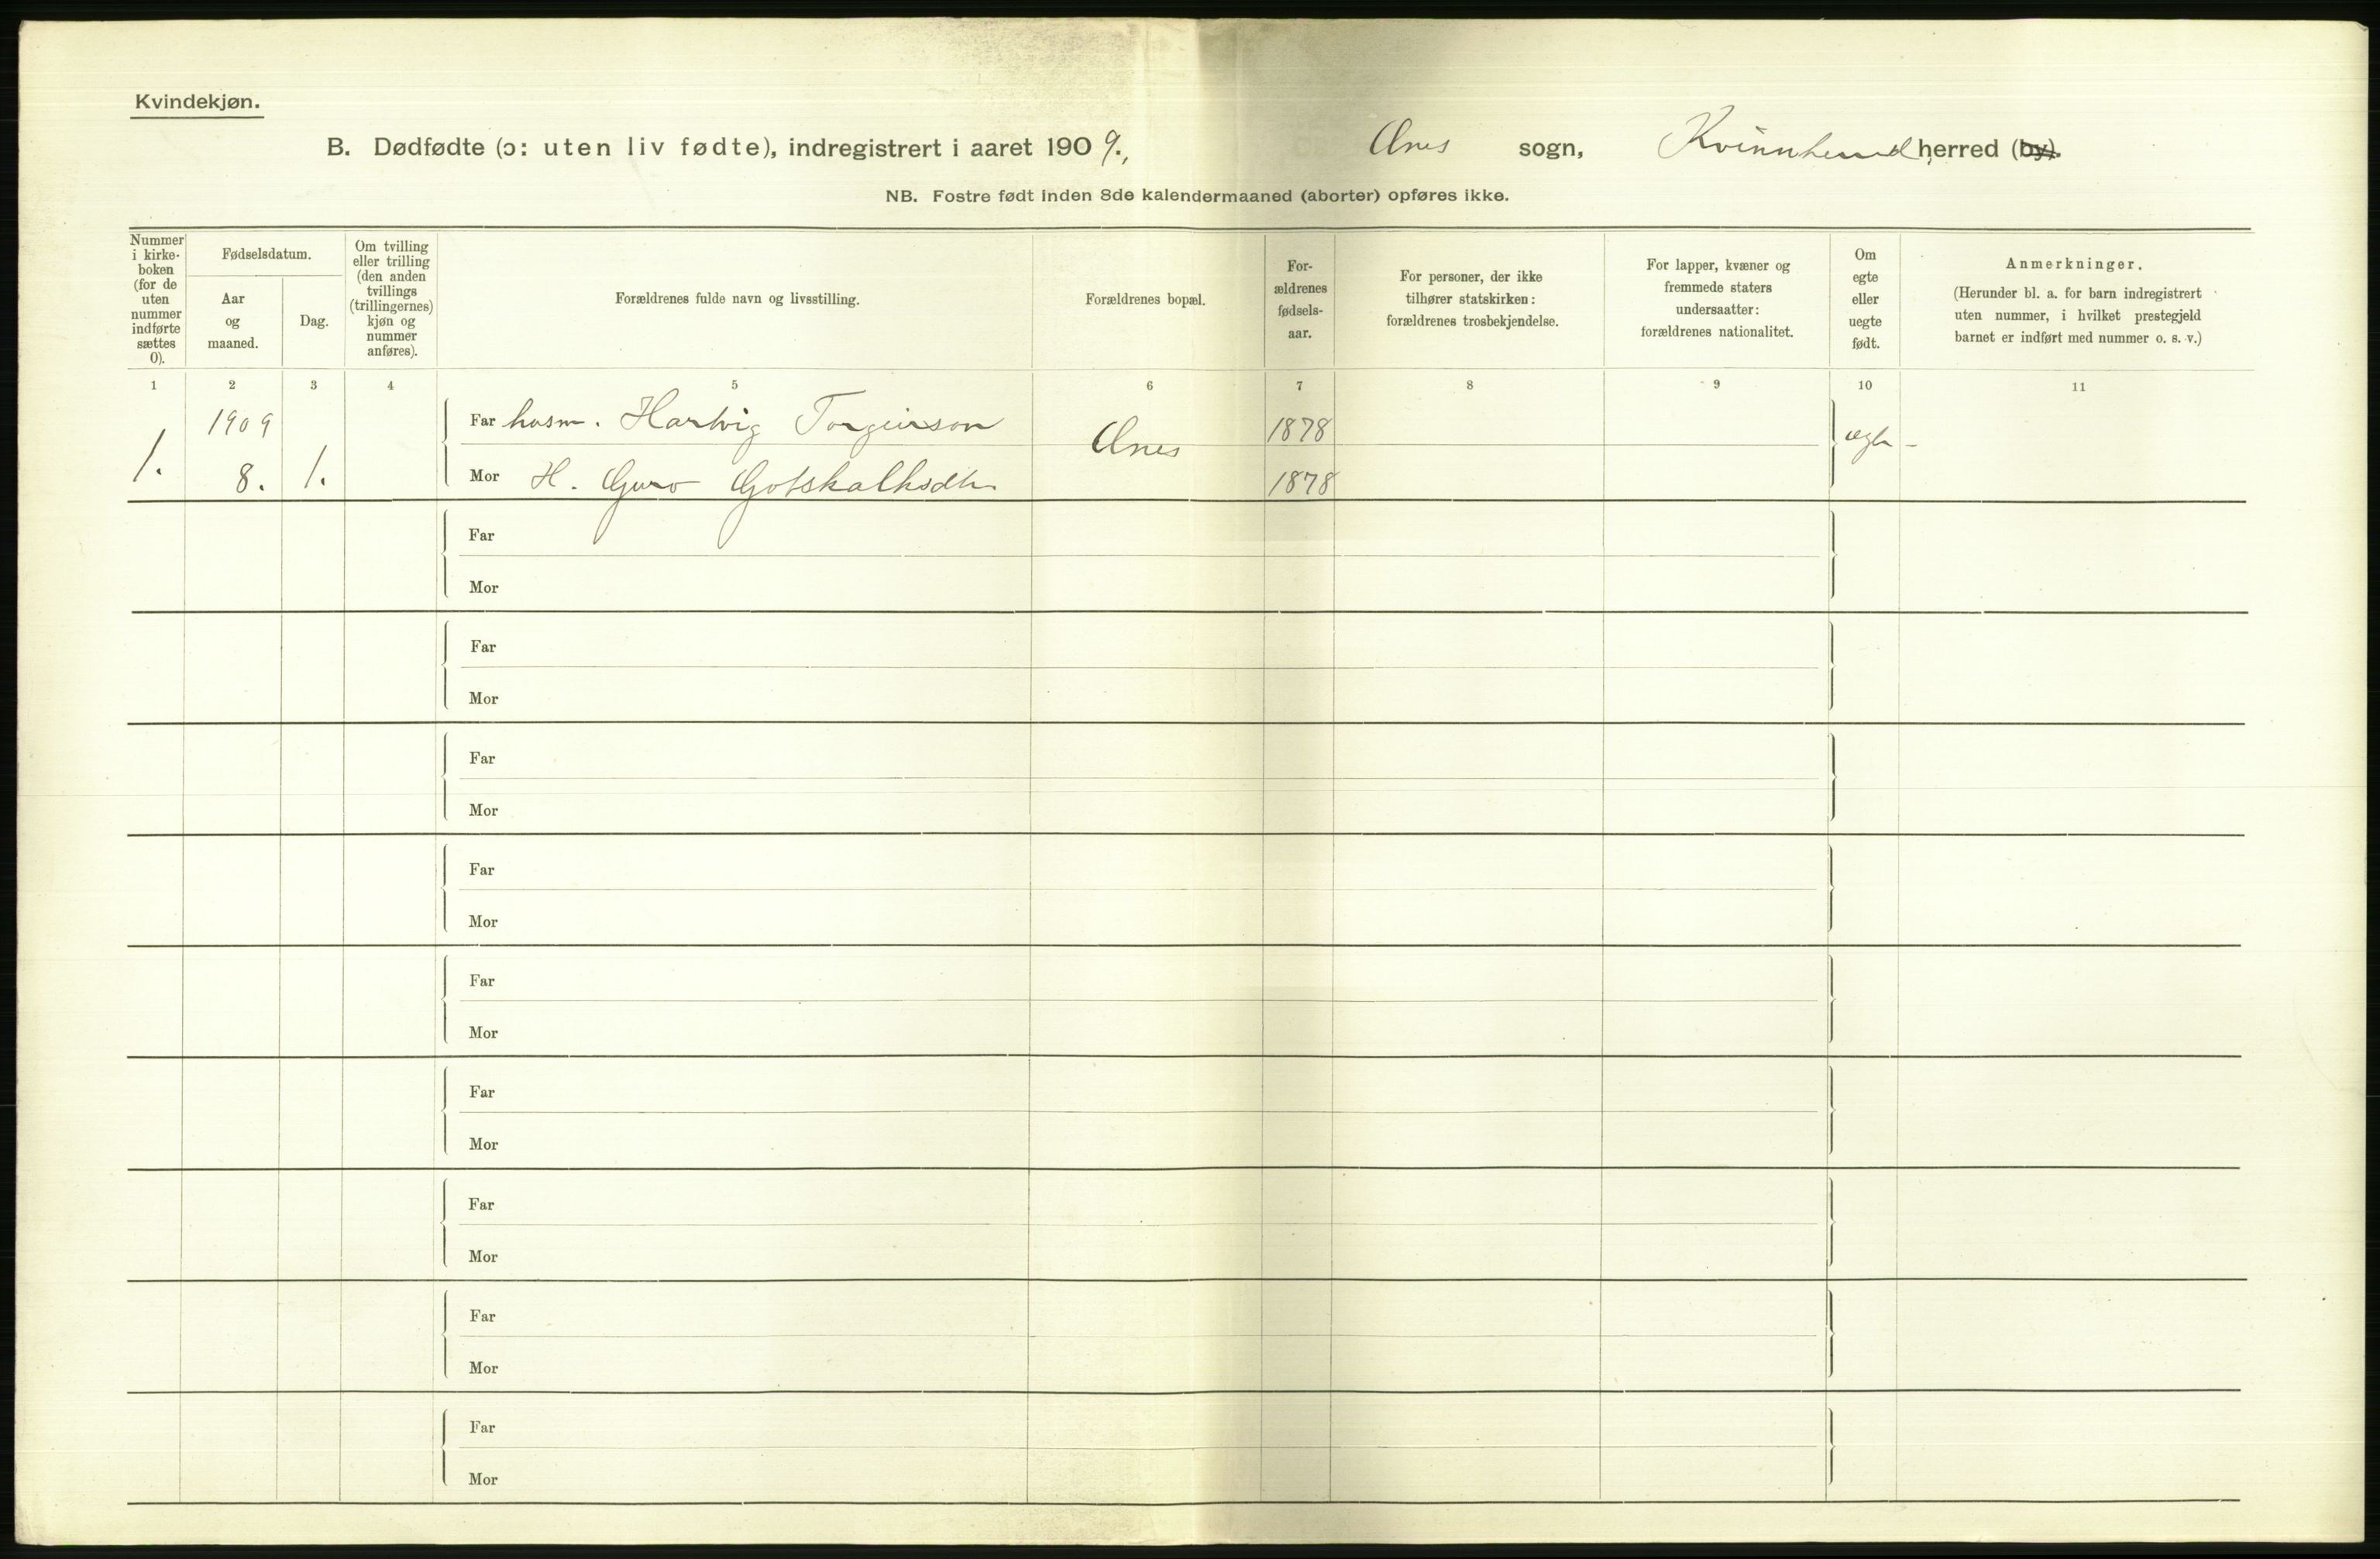 Kvindekjøn.
B. Dødfødte (ɔ: uten liv fødte), indregistrert i aaret 1909., Ænes sogn, Kvinnherred herred (by).
NB. Fostre født inden 8de kalendermaaned (aborter) opføres ikke.
Nummer i kirke-boken (for de uten nummer indførte sættes 0).
Fødselsdatum.
Aar og maaned.
Dag.
Om tvilling eller trilling (den anden tvillings (trillingernes) kjøn og nummer anføres).
Forældrenes fulde navn og livsstilling.
Forældrenes bopæl.
For-ældrenes fødsels-aar.
For personer, der ikke tilhører statskirken: forældrenes trosbekjendelse.
For lapper, kvæner og fremmede staters undersaatter: forældrenes nationalitet.
Om egte eller uegte født.
Anmerkninger.
(Herunder bl. a. for barn indregistrert uten nummer, i hvilket prestegjeld barnet er indført med nummer o. s. v.)
1 2 3 4 5 6 7 8 9 10 11
1909 Far husm. Hartvig Torgeirson Ænes 1878 egte -
1. 8. 1. Mor H. Guro Gotskalksdtr. 1878
Far
Mor
Far
Mor
Far
Mor
Far
Mor
Far
Mor
Far
Mor
Far
Mor
Far
Mor
Far
Mor